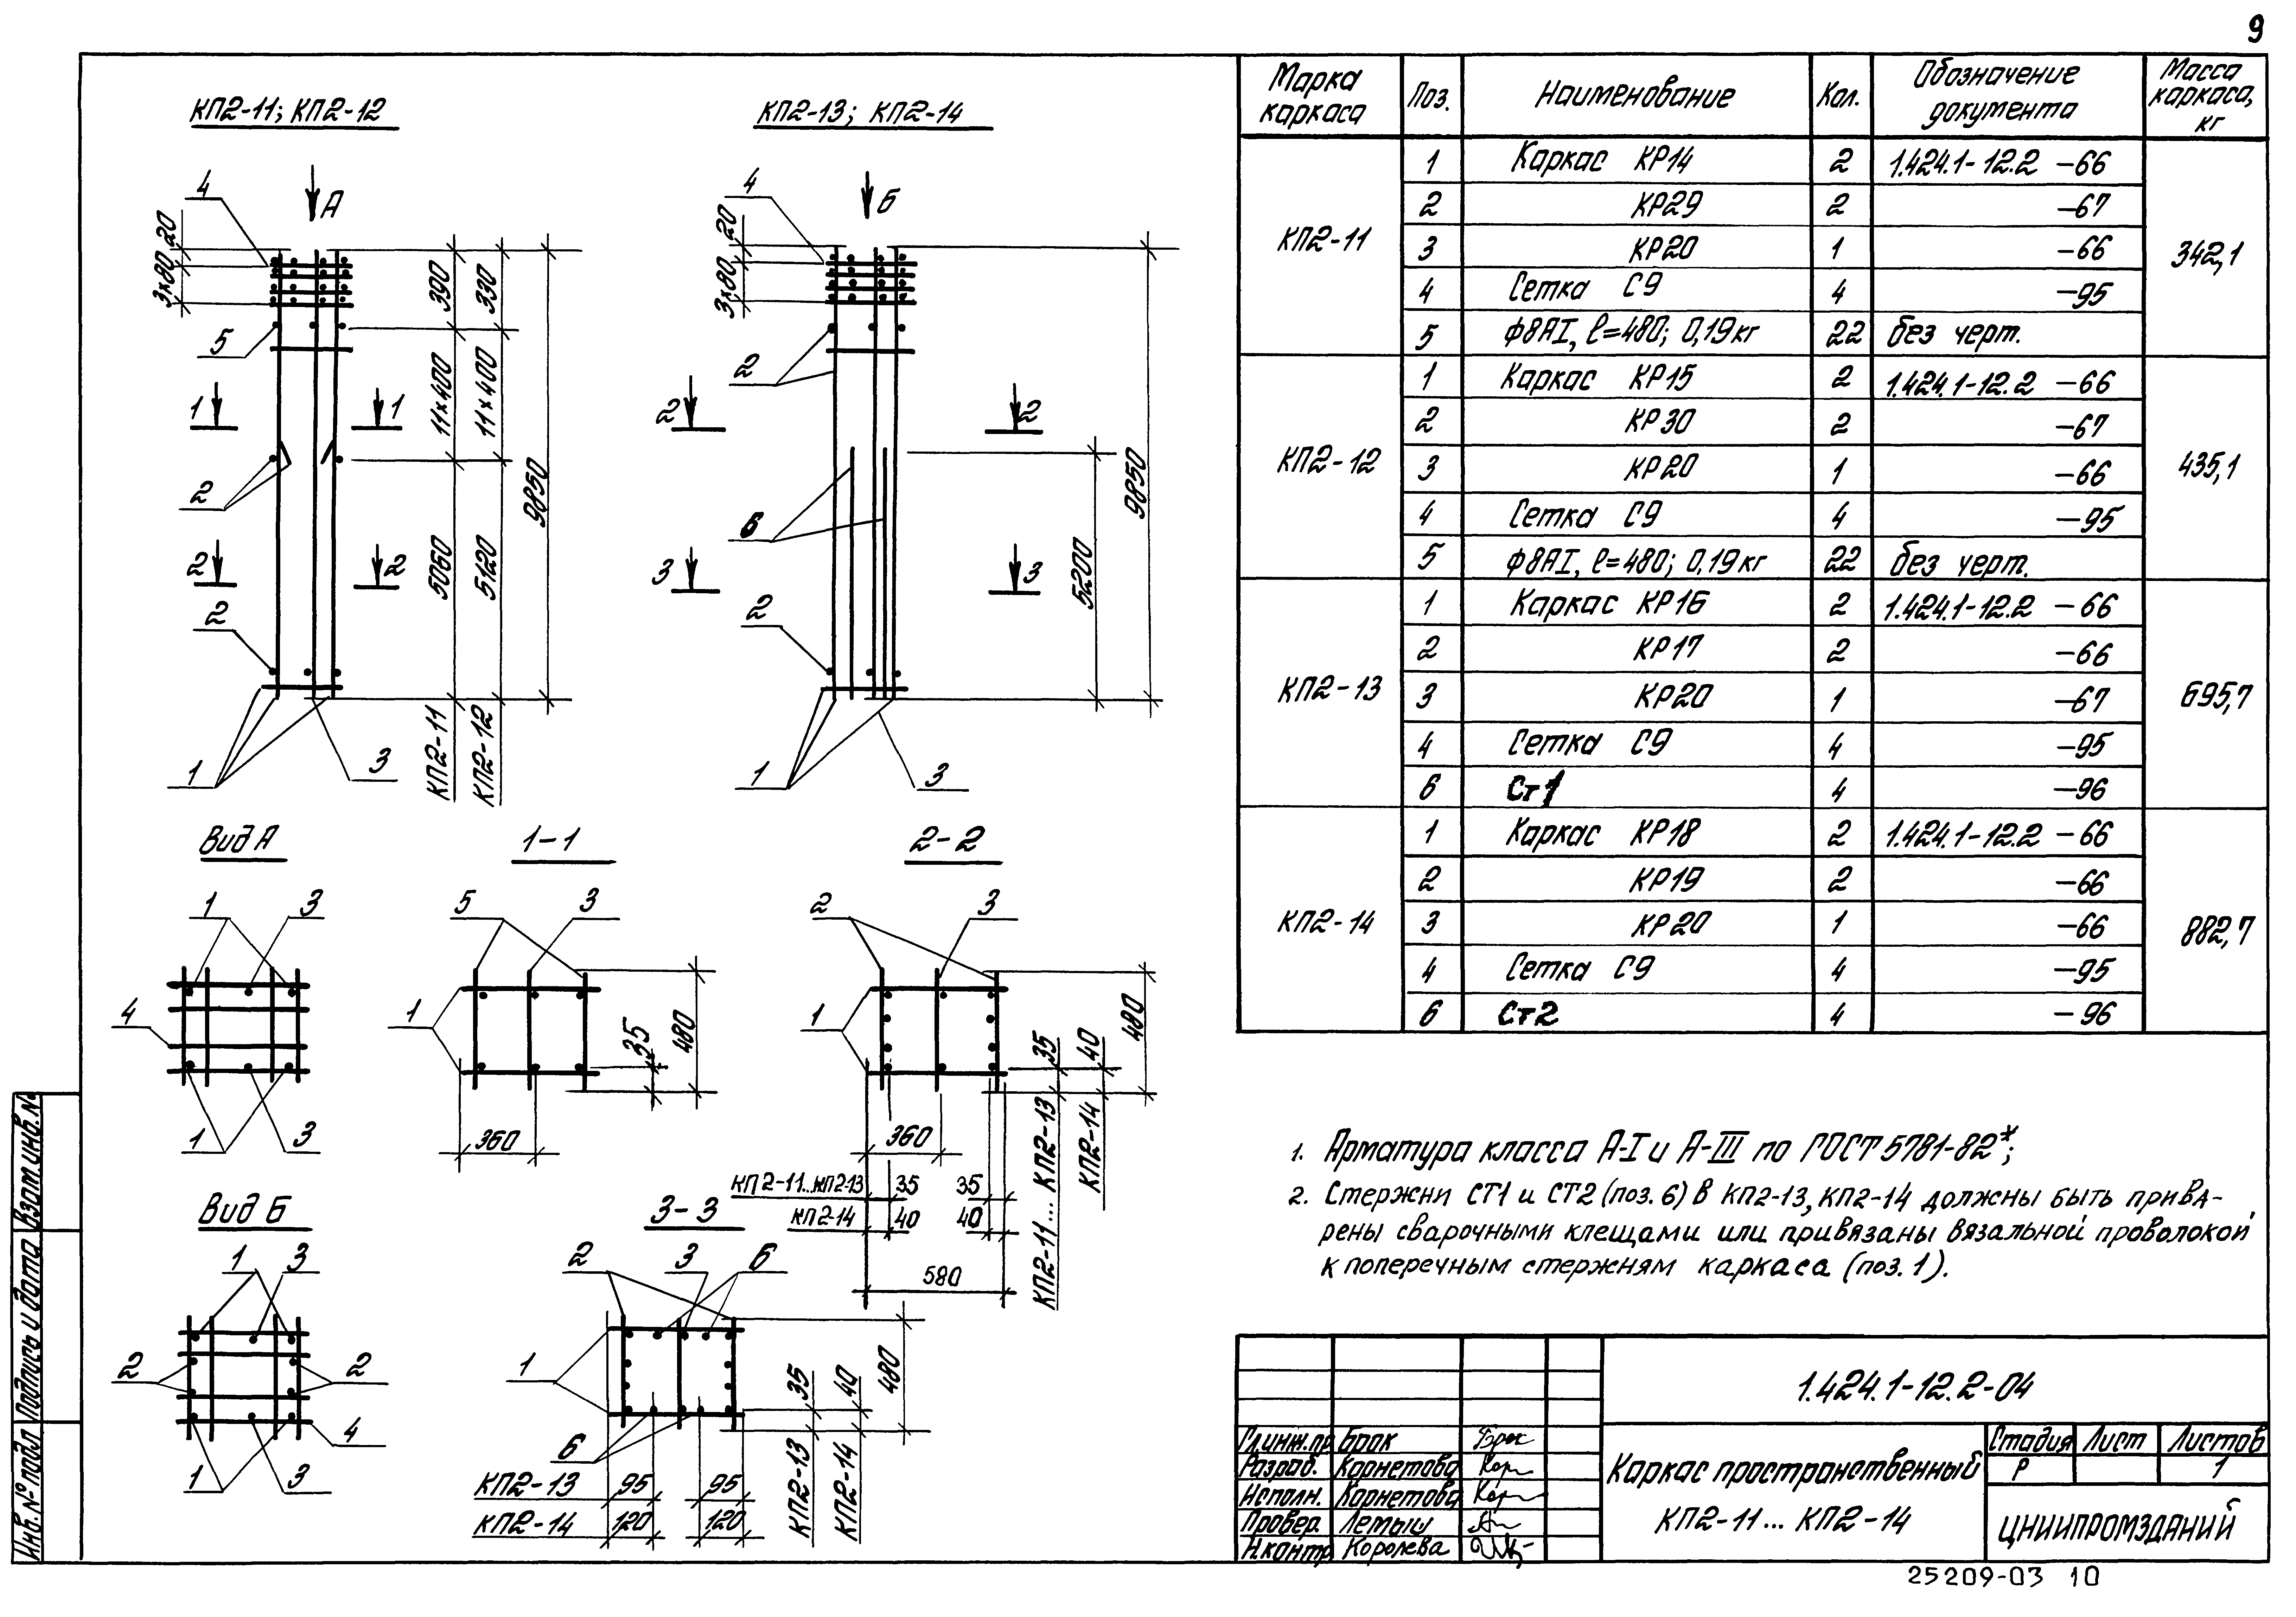 9
КП2-11; КП2-12
КП2-13; КП2-14
4
А
20
3×80
5
1
1
2
2
2
2
1
3
390
330
11×400
11×400
5060
5120
9850
КП2-11
КП2-12
4
Б
20
3×80
2
2
2
6
3
3
2
1
3
5200
9850
Вид А
1-1
2-2
1
3
4
1
3
5
3
1
35
480
360
2
3
1
480
35
40
360
КП2-11...КП2-13
35
35
КП2-14
40
40
580
КП2-11... КП2-13
КП2-14
Вид Б
3-3
1
3
2
2
4
1
3
2
3
6
1
6
35
40
480
КП2-13
95
95
КП2-14
120
120
КП2-13
КП2-14
Марка каркаса
Поз.
Наименование
Кол.
Обозначение документа
Масса каркаса, кг
КП2-11
342,1
1 Каркас КР14 2 1.424.1-12.2 -66
2 КР29 2 -67
3 КР20 1 -66
4 Сетка С9 4 -95
5 ф8АI, ℓ=480; 0,19кг 22 без черт.
КП2-12
435,1
1 Каркас КР15 2 1.424.1-12.2 -66
2 КР30 2 -67
3 КР20 1 -66
4 Сетка С9 4 -95
5 ф8АI, ℓ=480; 0,19кг 22 без черт.
КП2-13
695,7
1 Каркас КР16 2 1.424.1-12.2 -66
2 КР17 2 -66
3 КР20 1 -67
4 Сетка С9 4 -95
6 Ст1 4 -96
КП2-14
882,7
1 Каркас КР18 2 1.424.1-12.2 -66
2 КР19 2 -66
3 КР20 1 -66
4 Сетка С9 4 -95
6 Ст2 4 -96
1. Арматура класса А-I и А-III по ГОСТ 5781-82*;
2. Стержни СТ1 и СТ2 (поз. 6) в КП2-13, КП2-14 должны быть прива-
рены сварочными клещами или привязаны вязальной проволокой
к поперечным стержням каркаса (поз. 1).
1.424.1-12.2-04
Гл.инж.пр Брак
Разраб. Корнетова
Исполн. Корнетова
Провер. Лемыш
Н.контр Королева
Каркас пространственный
КП2-11... КП2-14
Стадия Лист Листов
Р 1
ЦНИИПРОМЗДАНИЙ
25209-03 10
Взам.инв.№
Подпись и дата
Инв.№ подл